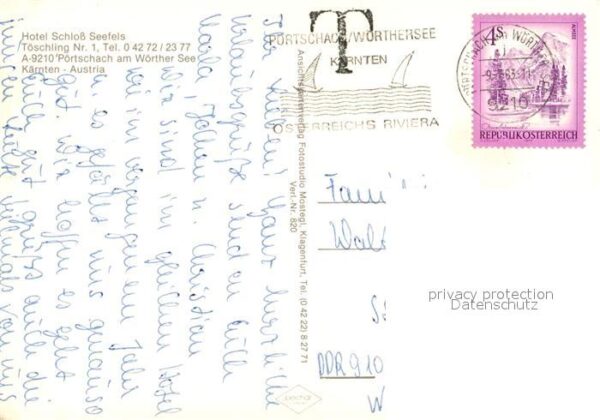 Hotel Schloß Seefels
Töschling Nr. 1, Tel. 0 42 72 / 23 77
A-9210 Pörtschach am Wörther See
Kärnten - Austria
T
PÖRTSCHACH/WÖRTHERSEE
KÄRNTEN
ÖSTERREICHS RIVIERA
PÖRTSCHACH AM WÖRTHER
9210
4S
REPUBLIK ÖSTERREICH
Ansichtskartenverlag Fotostudio Mostegl, Klagenfurt, Tel. (0 42 22) 8 27 71
Verl.-Nr. 820
Ihr Lieben! Ganz herzliche
Urlaubsgrüße sind an Euch
Christian
wir sind im gleichen Hotel
wie im vergangenen Jahr
u. es gefällt uns genauso
gut. wir hoffen es geht
Euch gut grüßt auch die
Fami
Walt
DDR 910
W
privacy protection
Datenschutz